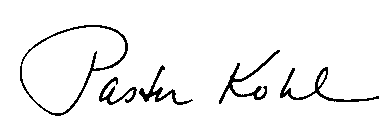 Pastor Kohl